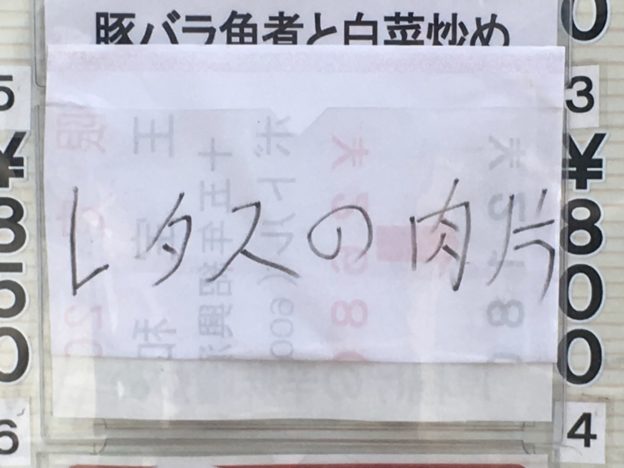 0
豚バラ角煮と白菜炒め
5
3
レタスの肉片
¥850
¥800
6
4